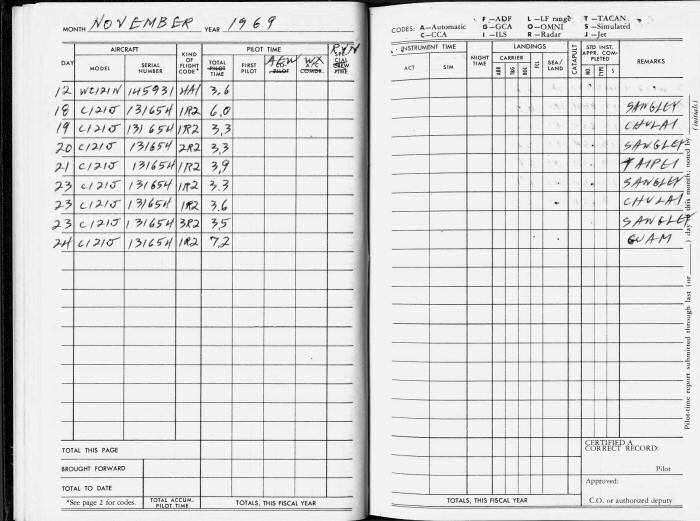 MONTH NOVEMBER YEAR 1969
AIRCRAFT KIND OF FLIGHT CODE PILOT TIME
DAY MODEL SERIAL NUMBER TOTAL PILOT TIME FIRST PILOT AEW CO-PILOT WX A/C COMDR. SPE- CIAL CREW TIME
12 WC121N 145931 3,6
18 C121J 131654 1R2 6,0
19 C121J 131654 1R2 3,3
20 C121J 131654 2R2 3,3
21 C121J 131654 1R2 3,9
23 C121J 131654 1R2 3,3
23 C121J 131654 1R2 3,6
23 C121J 131654 3R2 3,5
24 C121J 131654 1R2 7,2
TOTAL THIS PAGE
BROUGHT FORWARD
TOTAL TO DATE
*See page 2 for codes. TOTAL ACCUM. PILOT TIME TOTALS, THIS FISCAL YEAR
CODES: A—Automatic F—ADF L—LF range T—TACAN
C—CCA G—GCA O—OMNI S—Simulated
I—ILS R—Radar J—Jet
INSTRUMENT TIME NIGHT TIME LANDINGS CATAPULT STD INST. APPR. COM- PLETED REMARKS
ACT SIM CARRIER ARR T&G BOL FCL SEA/ LAND NO. TYPE S
SANGLEY
CHULAI
SANGLEY
TAIPEI
SANGLEY
CHULAI
SANGLEY
GUAM
CERTIFIED A CORRECT RECORD:
Pilot
Approved:
TOTALS, THIS FISCAL YEAR C.O. or authorized deputy
Pilot-time report submitted through last (or ) day this month; noted by (initials)